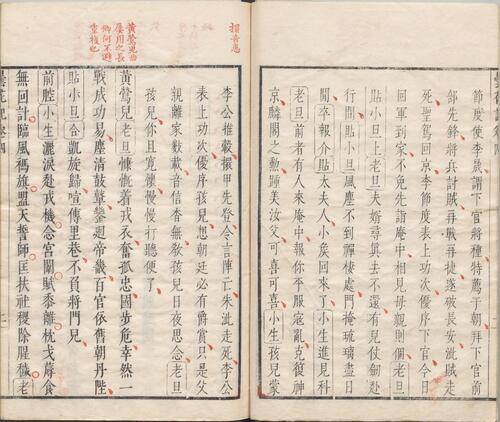 節度使李晟謂下官將種特薦于朝拜下官前
部先鋒將兵討賊再戰再捷遂破長安泚賊走
死聖駕回京李節度表上功次優序下官今日
回軍到家不免先詣庵中相見母親則個老旦
貼小旦上老旦夫婿尋眞去不還有兒仗劍赴
行間貼小旦風塵不到禪棲處門掩琉璃盡日
閒卒報介貼太夫人小矦回來了小生進見科
老旦前者有人來庵中報你平服寇亂克復神
京麟閣之勲踵美汝父可喜可喜小生孩兒蒙
擐音患
李公推轂擐甲先登令言陣亡朱泚走死李公
表上功次優序孩兒想朝廷必有爵賞只是父
親離家數載音信杳無教孩兒日夜思念老旦
孩兒你且寬懷慢慢打聽便了
黃鶯兒曲
屢用之長
卿何不避
重複也
黃鶯兒老旦慷慨着戎衣奮孤忠國步危幸然一
戰成功易塵清鼓鼙鑾迴帝畿百官依舊朝丹陛
貼小旦合凱旋歸喧傳里巷不負將門兒
前腔小生灑淚赴戎機念宮闕賦黍離枕戈蓐食
無回計臨風禡旗盟天誓師匡扶社稷除腥穢老